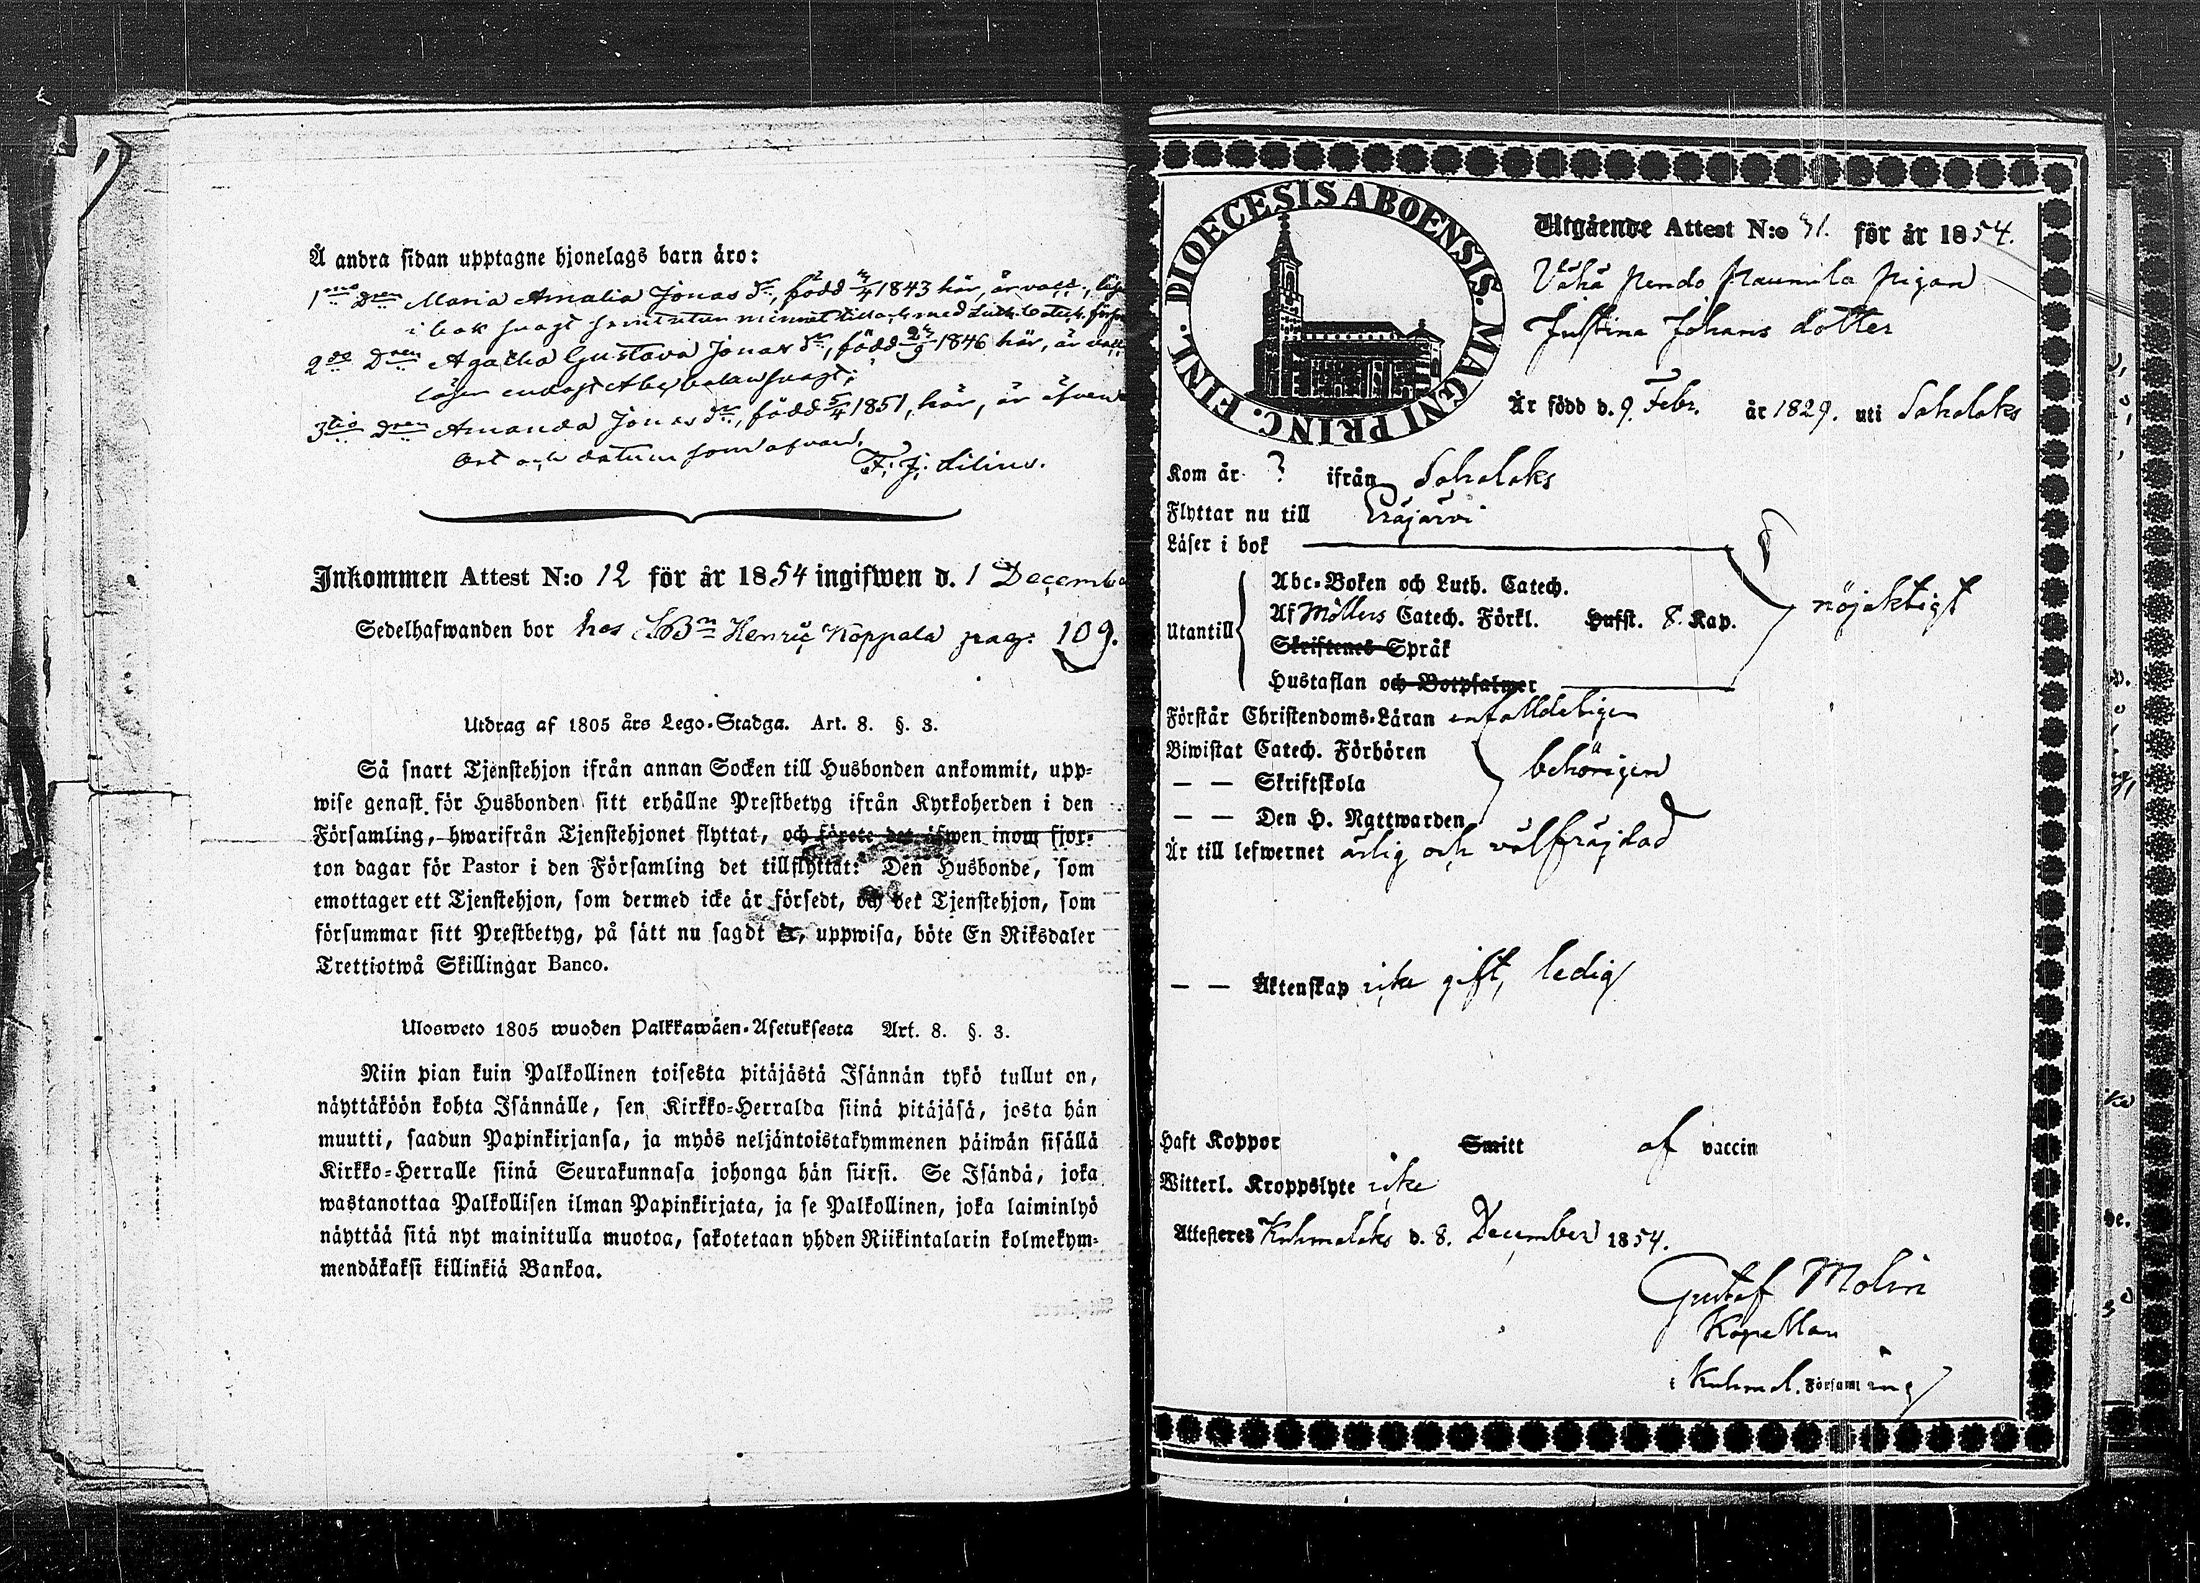 Å andra sidan upptagne hjonelags barn äro:
1mo Dren Maria Amalia Jonas dr, född 1843 här, är vacc.,
i bok svagt
2do Dren Agatha Gustava Jonas dr, född 1846 här, är
läser endast Abc boken svagt;
3tio Dren Amanda Jonas dr, född 5/4 1851, här, är äfven
Ort och datum som ofvan.
F. J. Lilius.
Inkommen Attest N:o 12 för år 1854 ingifwen d. 1 Decemb
Sedelhafwanden bor hos Henric Koppala pag: 109.
Utdrag af 1805 års Lego-Stadga. Art. 8. §. 3.
Så snart Tjenstehjon ifrån annan Socken till Husbonden ankommit, upp-
wise genast för Husbonden sitt erhållne Prestbetyg ifrån Kyrkoherden i den
Församling, hwarifrån Tjenstehjonet flyttat, och förete det äfwen inom fjor-
ton dagar för Pastor i den Församling det tillflyttat: Den Husbonde, som
emottager ett Tjenstehjon, som dermed icke är försedt, och det Tjenstehjon, som
försummar sitt Prestbetyg, på sätt nu sagdt är, uppwisa, böte En Riksdaler
Trettiotwå Skillingar Banco.
Ulosweto 1805 wuoden Palkkawäen-Asetuksesta Art. 8. §. 3.
Niin pian kuin Palkollinen toisesta pitäjästä Isännän tykö tullut on,
näyttäköön kohta Isännälle, sen Kirkko-Herralda siinä pitäjäsä, josta hän
muutti, saadun Papinkirjansa, ja myös neljäntoistakymmenen päiwän sisällä
Kirkko-Herralle siinä Seurakunnasa johonga hän siirsi. Se Isändä, joka
wastanottaa Palkollisen ilman Papinkirjata, ja se Palkollinen, joka laiminlyö
näyttää sitä nyt mainitulla muotoa, sakotetaan yhden Riikintalarin kolmekym-
mendäkaksi killinkiä Bankoa.
DIOECESIS ABOENSIS. MAGNI PRINC. FINL.
Utgående Attest N:o 31. för år 1854.
Vähä Pendo Raumila Pigan
Justina Johans dotter
Är född d. 9. Febr. år 1829. uti Sahalaks
Kom år ? ifrån Sahalaks
Flyttar nu till Eräjärvi
Läser i bok
Abc-Boken och Luth. Catech.
Utantill Af Möllers Catech. Förkl. Hufst. 8. Kap. nöjaktigt
Skriftenes Språk
Hustaflan och Botpsalmer
Förstår Christendoms-Läran enfalldeligen
Biwistat Catech. Förhören
— — Skriftskola behörigen
— — Den H. Nattwarden
Är till lefwernet ärlig och välfräjdad
— — Äktenskap icke gift, ledig
Haft Koppor Smitt af vaccin
Witterl. Kroppslyte icke
Attesteres Kuhmalaks d. 8. December 1854.
Gustaf Molin
Kapellan
i Kuhmal. Församling